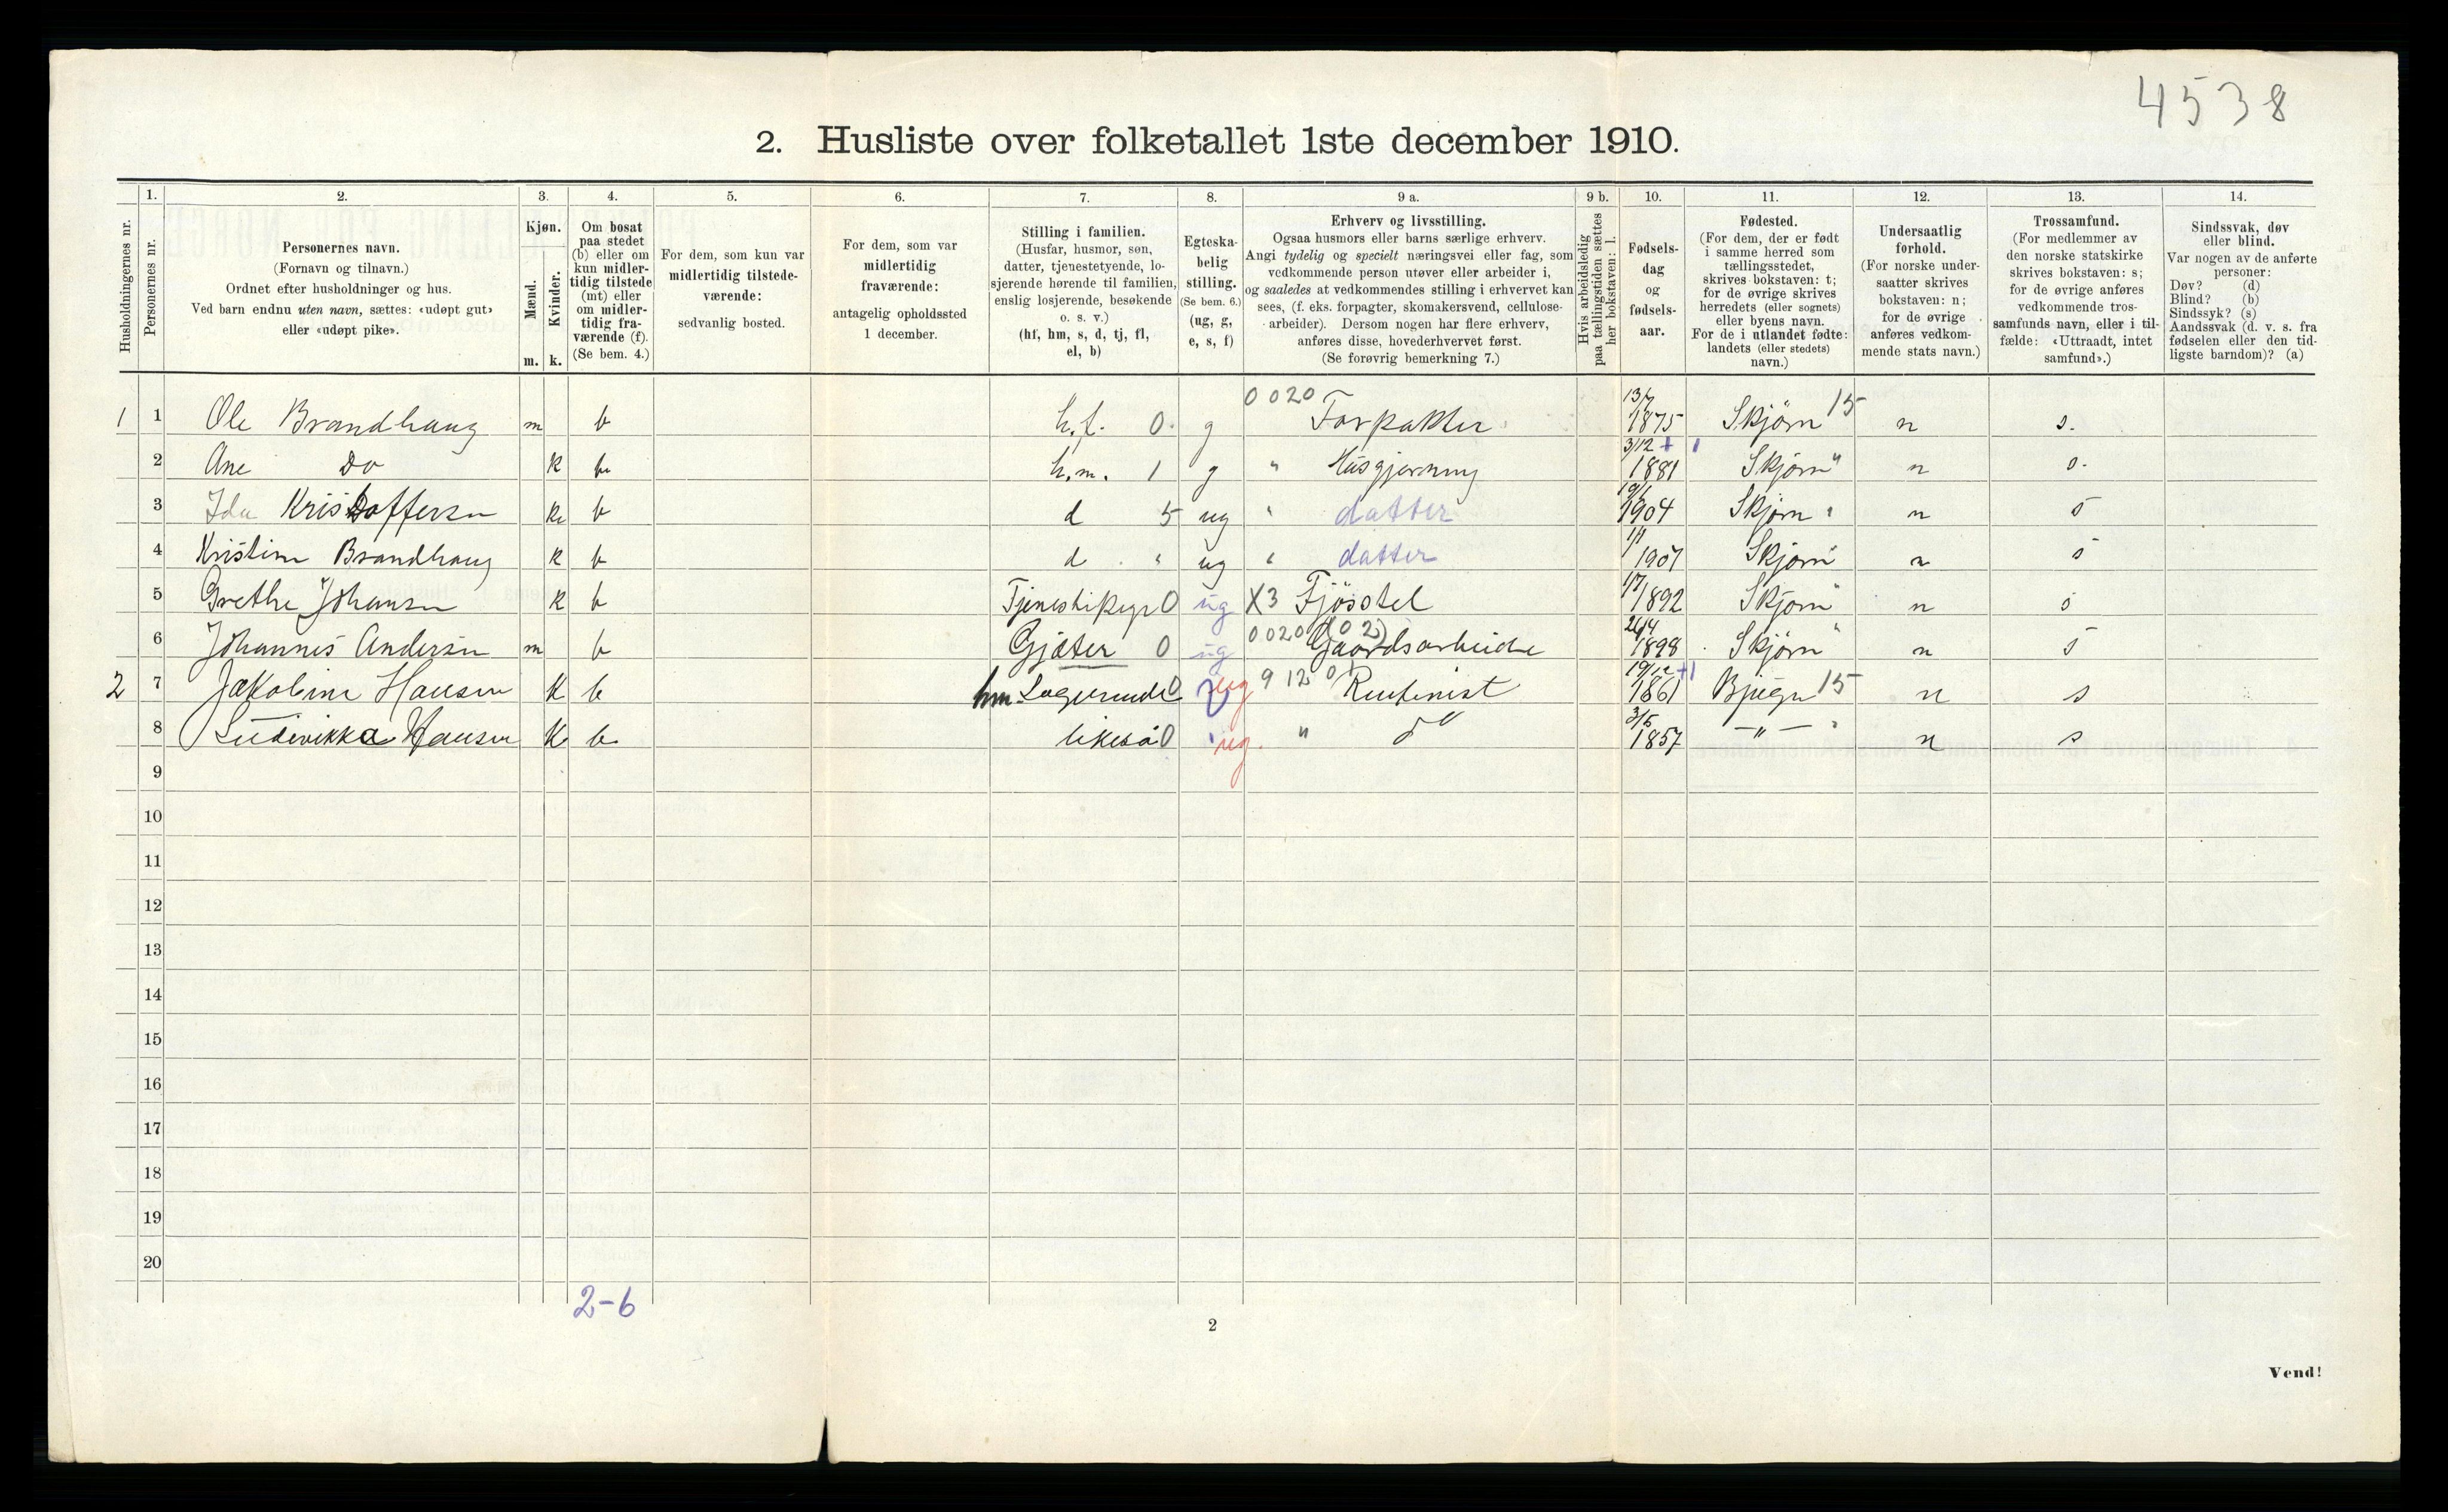 4538
2. Husliste over folketallet 1ste december 1910.
Husholdningernes nr.
1.
Personernes nr.
2.
Personernes navn.
(Fornavn og tilnavn.)
Ordnet efter husholdninger og hus.
Ved barn endnu uten navn, sættes: «udøpt gut»
eller «udøpt pike».
3.
Kjøn.
Mænd.
Kvinder.
m. k.
4.
Om bosat
paa stedet
(b) eller om
kun midler-
tidig tilstede
(mt) eller
om midler-
tidig fra-
værende (f).
(Se bem. 4.)
5.
For dem, som kun var
midlertidig tilstede-
værende:
sedvanlig bosted.
6.
For dem, som var
midlertidig
fraværende:
antagelig opholdssted
1 december.
7.
Stilling i familien.
(Husfar, husmor, søn,
datter, tjenestetyende, lo-
sjerende hørende til familien,
enslig losjerende, besøkende
o. s. v.)
(hf, hm, s, d, tj, fl,
el, b)
8.
Egteska-
belig
stilling.
(Se bem. 6.)
(ug, g,
e, s, f)
9 a.
Erhverv og livsstilling.
Ogsaa husmors eller barns særlige erhverv.
Angi tydelig og specielt næringsvei eller fag, som
vedkommende person utøver eller arbeider i,
og saaledes at vedkommendes stilling i erhvervet kan
sees, (f. eks. forpagter, skomakersvend, cellulose-
arbeider). Dersom nogen har flere erhverv,
anføres disse, hovederhvervet først.
(Se forøvrig bemerkning 7.)
9 b.
Hvis arbeidsledig
paa tællingstiden sættes
her bokstaven: l.
10.
Fødsels-
dag
og
fødsels-
aar.
11.
Fødested.
(For dem, der er født
i samme herred som
tællingsstedet,
skrives bokstaven: t;
for de øvrige skrives
herredets (eller sognets)
eller byens navn.
For de i utlandet fødte:
landets (eller stedets)
navn.)
12.
Undersaatlig
forhold.
(For norske under-
saatter skrives
bokstaven: n;
for de øvrige
anføres vedkom-
mende stats navn.)
13.
Trossamfund.
(For medlemmer av
den norske statskirke
skrives bokstaven: s;
for de øvrige anføres
vedkommende tros-
samfunds navn, eller i til-
fælde: «Uttraadt, intet
samfund».)
14.
Sindssvak, døv
eller blind.
Var nogen av de anførte
personer:
Døv? (d)
Blind? (b)
Sindssyk? (s)
Aandssvak (d. v. s. fra
fødselen eller den tid-
ligste barndom)? (a)
1 1 Ole Brandhaug m b h.f. 0 g 0020 Forpakter 13/7 1875 Skjörn 15 n s.
2 Ane Do k b h.m. 1 g " Husgjerning 3/12 1881 Skjörn " n s.
3 Ida Kristoffersen k b d 5 ug " datter 19/1 1904 Skjörn " n s
4 Kristine Brandhaug k b d " ug " datter 1/1 1907 Skjörn " n s
5 Grethe Johansen k b Tjenestepige 0 ug X3 Fjösstel 1/7 1892 Skjörn " n s
6 Johannes Andersen m b Gjæter 0 ug 0020 (02) Gaardsarbeide 26/4 1898 Skjörn " n s
2 7 Jakobine Hansen k b hm Logerende 0 ug 9 12 0 Rentenist 19/12 1861 Bjugn 15 n s
8 Ludivikka Hansen k b likeså 0 ug. " do 3/5 1857 — " — " n s
9
10
11
12
13
14
15
16
17
18
19
20
2-6
2
Vend!